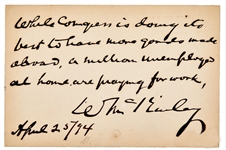 While Congress is doing its
best to have more goods made
abroad, a million unemployed
at home are praying for work,
Wm McKinley
April 25/94